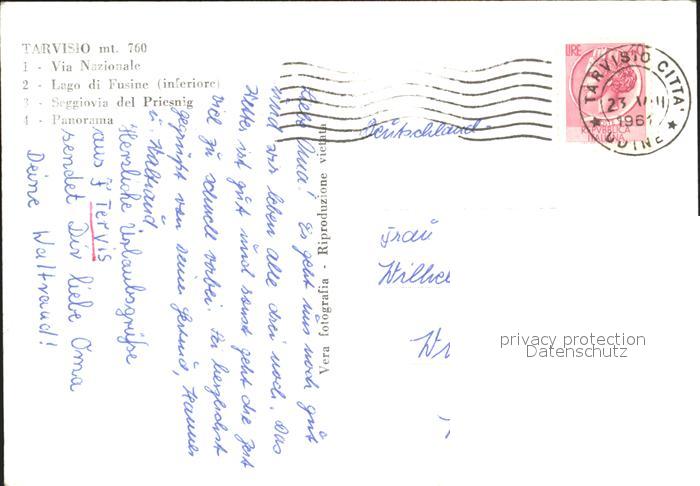 TARVISIO mt. 760
1 - Via Nazionale
2 - Lago di Fusine (inferiore)
3 - Seggiovia del Priesnig
4 - Panorama
Liebe Oma! Es geht uns noch gut
und wir leben alle drei noch. Das
Wetter ist gut und sonst geht die Zeit
viel zu schnell vorbei. Sei herzlichst
gegrüßt von Deine Gerlind, Hannes
u. Waltraud
Herzliche Urlaubsgrüße
aus Tervis
sendet Dir liebe Oma
Deine Waltraud!
Vera fotografia - Riproduzione vietata
LIRE 40
REPVBBLICA
ITALIANA
TARVISIO CITTA'
23 VII
1961
UDINE
Deutschland
Frau
Wilhe
privacy protection
Datenschutz